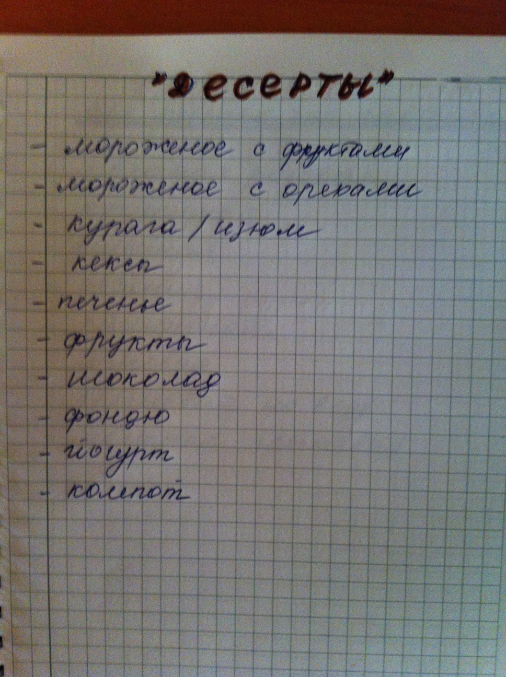 "Десерты"
- мороженое с фруктами
- мороженое с орехами
- курага / изюм
- кексы
- печенье
- фрукты
- шоколад
- фондю
- йогурт
- компот